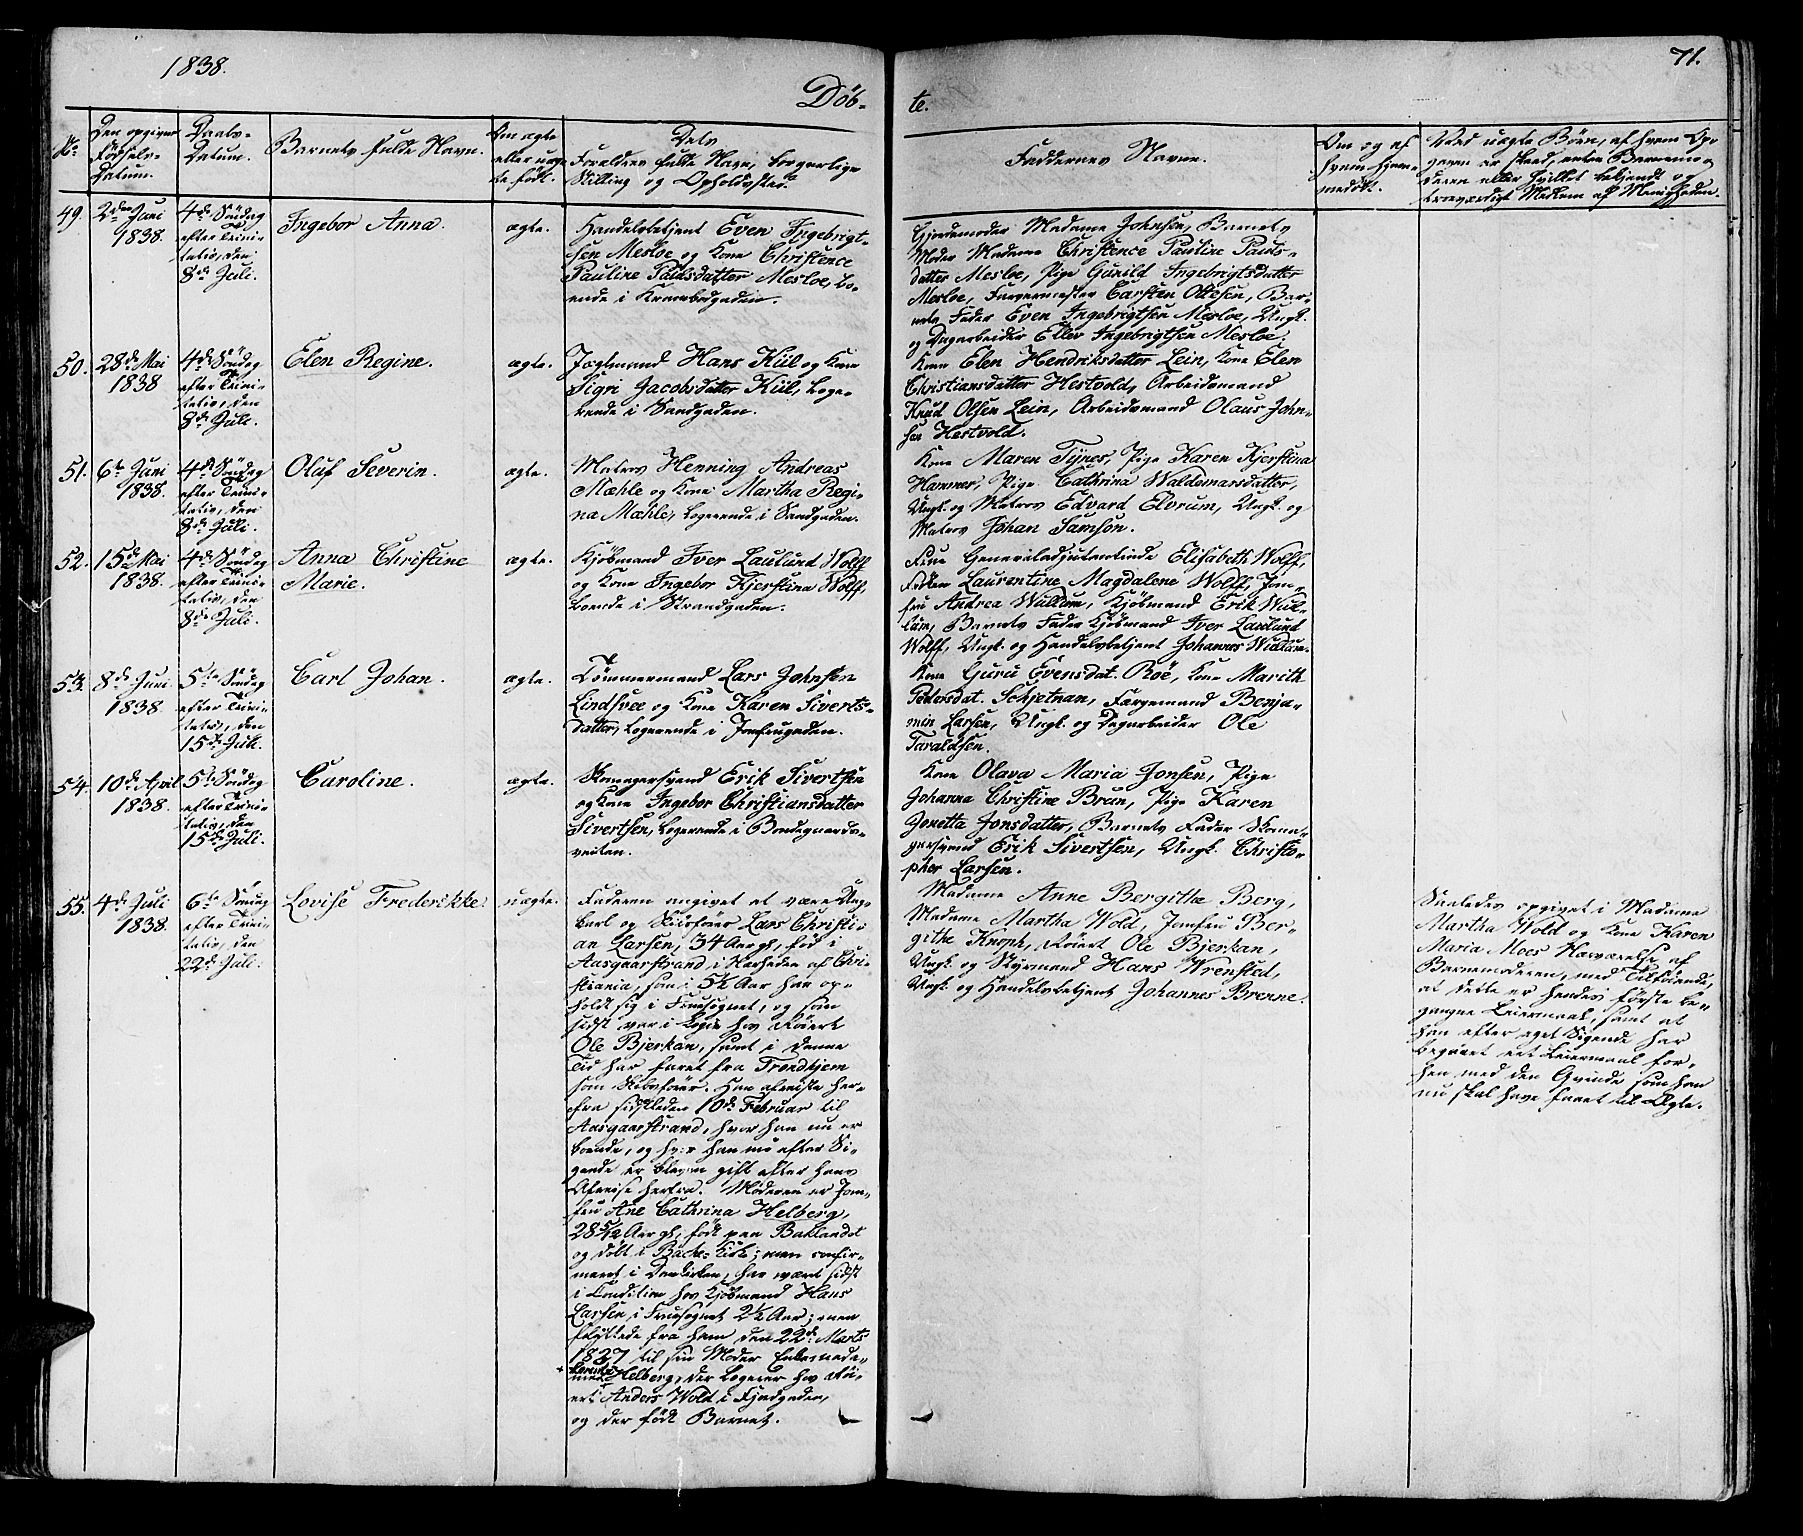 1838.
71.
Døb-
te.
No
Den opgivne
Fødsels-
Datum.
Daabs-
Datum.
Barnets fulde Navn.
Om ægte
eller uæg-
te født.
Dets
Forældres fulde Navn, borgerlige
Stilling og Opholdssted.
Faddernes Navne.
Om og af
hvem hjem-
medøbt.
Ved uægte Børn, af hvem Op-
gaven er skeed, enten Barnemo-
deren eller hvilket bekjendt og
troværdigt Medlem af Menigheden.
49.
2den Juni
1838.
4de Søndag
efter Trini-
tatis, den
8de Juli.
Ingebor Anna.
ægte.
Handelsbetjent Even Ingebrigt-
sen Mesloe og Kone Christence
Pauline Paulsdatter Mesloe, bo-
ende i Krambodgaden.
Gjordemoder Madame Johnsen, Barnets
Moder Madame Christence Pauline Pauls-
datter Mesloe, Pige Gunild Ingebrigtsdatter
Mesloe, Farvermester Carsten Ottesen, Bar-
nets Fader Even Ingebrigtsen Mesloe, Ungk.
og Dagarbeider Eller Ingebrigtsen Mesloe.
50.
28de Mai
1838
4de Søndag
efter Trini-
tatis, den
8de Juli.
Elen Regine.
ægte.
Jagtemand Hans Kiil og Kone
Sigri Jacobsdatter Kiil, Loge-
rende i Sandgaden.
Kone Elen Hendriksdatter Lein, Kone Elen
Christiansdatter Hestvold, Arbeidsmand
Knud Olsen Lein, Arbeidsmand Olaus John-
sen Hestvold.
51.
6te Juni
1838.
4de Søndag
efter Trini-
tatis, den
8de Juli.
Oluf Severin.
ægte.
Matros Henning Andreas
Mæhle og Kone Martha Regi-
na Mæhle, Logerende i Sandgaden.
Kone Maren Tynes, Pige Karen Kjerstina
Hammer, Pige Cathrina Waldemarsdatter,
Ungk. og Matros Edvard Elvrum, Ungk. og
Matros Johan Samson.
52.
15de Mai
1838.
4de Søndag
efter Trini-
tatis, den
8de Juli.
Anna Christine
Marie.
ægte.
Kjøbmand Iver Laulund Wolff
og Kone Ingebor Kjerstina Wolff,
boende i Strandgaden.
Frue Generaladjutantinde Elisabeth Wolff,
Frøken Laurentine Magdalene Wolff, Jom-
fru Andrea Wullum, Kjøbmand Erik Wul-
lum, Barnets Fader Kjøbmand Iver Laulund
Wolff, Ungk. og Handelsbetjent Johannes Wullum.
53.
8de Juni
1838.
5te Søndag
efter Trini-
tatis, den
15de Juli.
Carl Johan.
ægte.
Tømmermand Lars Johnsen
Lindsvee og Kone Karen Siverts-
datter, Logerende i Jomfrugaden.
Kone Guru Evensdat. Røe, Kone Marith
Pedersdat. Schjetnan, Færgemand Benja-
min Larsen, Ungk. og Dagarbeider Ole
Taraldsen.
54.
10de April
1838.
5te Søndag
efter Trini-
tatis, den
15de Juli.
Caroline.
ægte.
Skomagersvend Erik Sivertsen
og Kone Ingebor Christiansdatter
Sivertsen, Logerende i Bondegaards-
veiten.
Kone Olava Maria Jonsen, Pige
Johanna Christine Brun, Pige Karen
Jonetta Jonsdatter, Barnets Fader Skoma-
gersvend Erik Sivertsen, Ungk. Christo-
pher Larsen.
55.
4de Juli
1838.
6te Søndag
efter Trini-
tatis, den
22de Juli.
Lovise Frederikke.
uægte.
Faderen angivet at være Ung-
karl og Skibsfører Lars Christi-
an Larsen, 34 Aar gl., fød i
Aasgaarstrand i Nærheden af Chri-
stiania, som i 5½ Aar har op-
holdt sig i Fruesognet, og som
sidst var i Logie hos Røiert
Ole Bjerkan, samt i denne
Tid har faret fra Trondhjem
som Skibsfører. Han afreiste her-
fra sidstleden 10de Februar til
Aasgaarstrand, hvor han nu er
boende, og hvor han nu efter Si-
gende er bleven gift efter hans
Afreise herfra. Moderen er Jom-
fru Ane Cathrina Helberg,
28 5/12 Aar gl., født paa Baklandet
og døbt i Bache-Kirke; men confir-
meret i Domkirken, har været sidst
i Condition hos Kjøbmand Hans
Larsen, i Fruesognet 2½ Aar; men
flyttede fra ham den 22de Marts
1837 til sin Moder Enkemada-
me Helberg, der Logerer hos Røi-
ert Anders Wold i Fjordgaden,
og der født Barnet.
Madame Anne Bergitha Berg,
Madame Martha Wold, Jomfru Ber-
githe Knoph, Røiert Ole Bjerkan,
Ungk. og Styrmand Hans Wrensted,
Ungk. og Handelsbetjent Johannes Brenne.
Saaledes opgivet i Madame
Martha Wold og Kone Karen
Maria Moes Nærværelse af
Barnemoderen, med Tilføiende,
at dette er hendes første be-
gangne Leiermaal, samt at
han efter eget Sigende har
begaaet eet Leiermaal før-
hen med den Qvinde som han
nu skal have faaet til Ægte.